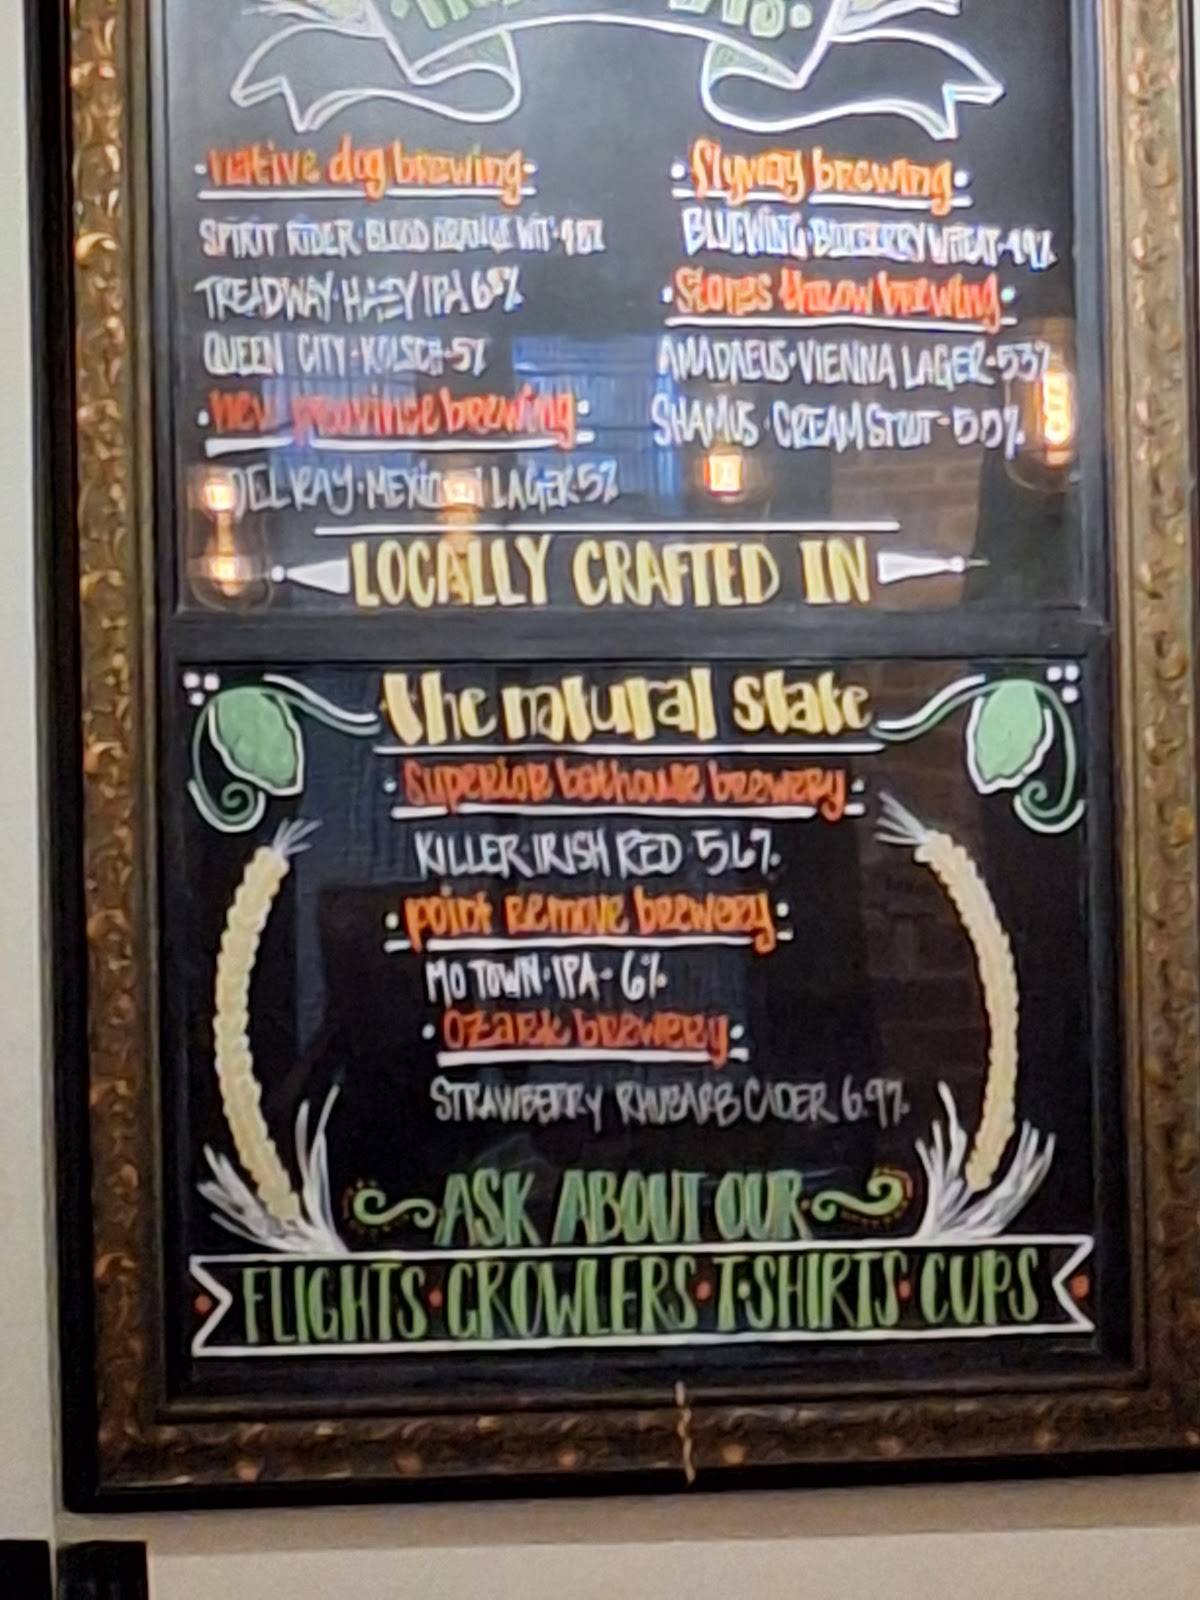 ·native dog brewing·
SPIRIT RIDER·BLOOD ORANGE WIT·
TREADWAY·HAZY IPA
QUEEN CITY·KOLSCH-5%
·new province brewing·
DELRAY·MEXICAN LAGER·5%
·flyway brewing·
BLUEWING·BLUEBERRY WHEAT·4.9%
·Stones throw brewing·
AMADAEUS·VIENNA LAGER-5.3%
SHAMUS·CREAM STOUT-5.0%
LOCALLY CRAFTED IN
the natural state
·Superior bathouse brewery·
KILLER·IRISH RED
·point Remove brewery·
MO TOWN·IPA-6%
·Ozark brewery·
STRAWBERRY RHUBARB CIDER 6.9%
ASK ABOUT OUR
FLIGHTS·GROWLERS·T·SHIRTS·CUPS